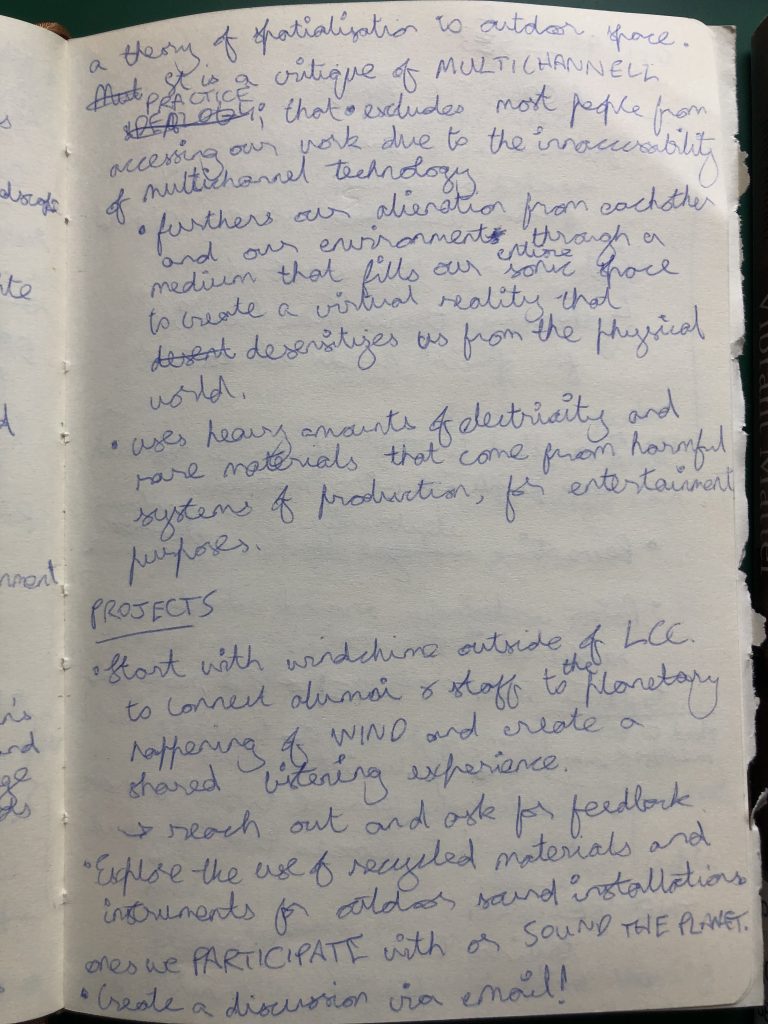 a theory of spatialisation is outdoor space.
~~Must~~ It is a critique of MULTICHANNELL
PRACTICE
; that excludes most people from
accessing our work due to the innaccessability
of multichannel technology
• furthers our alienation from eachother
and our environments through a
entire
medium that fills our sonic space
to create a virtual reality that
~~desent~~ desensitizes us from the physical
world.
• uses heavy amounts of electricity and
rare materials that come from harmful
systems of production, for entertainment
purposes.
PROJECTS
• Start with windchime outside of LCC.
the
to connect alumni & staff to planetary
happening of WIND and create a
shared listening experience.
→ reach out and ask for feedback
• Explore the use of recycled materials and
instruments for outdoor sound installations
ones we PARTICIPATE with or SOUND THE PLANET.
• Create a discussion via email!
nment
Vibrant Matter